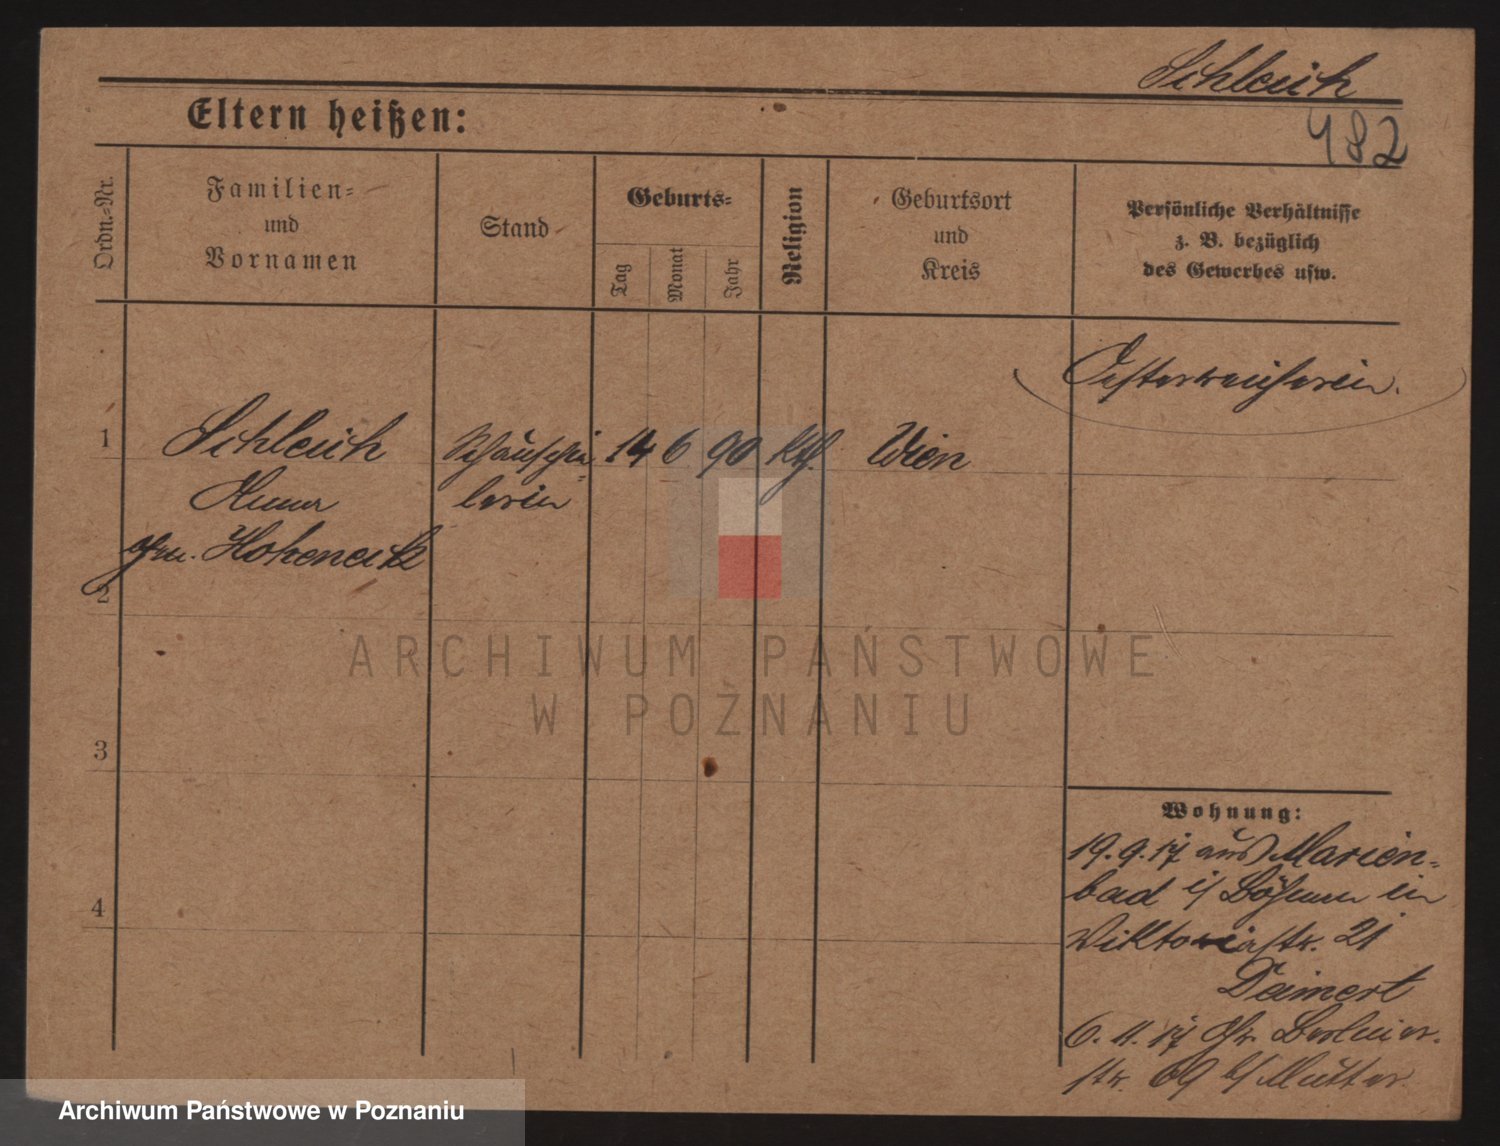 Schleich
482
Eltern heißen:
Ordn.=Nr.
Familien=
und
Vornamen
Stand
Geburts=
Tag
Monat
Jahr
Religion
Geburtsort
und
Kreis
Persönliche Verhältnisse
z. B. bezüglich
des Gewerbes usw.
Oesterreicherin.
1
Schleich
Anna
gen. Hoheneck
Schauspie=
lerin
14 6 90 kth. Wien
2
3
4
Wohnung:
19.9.17 aus Marien=
bad i/ Böhmen in
Viktoriastr. 21
Deimert
6.11.17 Gr. Berliner=
str. 69 b/ Mutter
ARCHIWUM PAŃSTWOWE
W POZNANIU
Archiwum Państwowe w Poznaniu